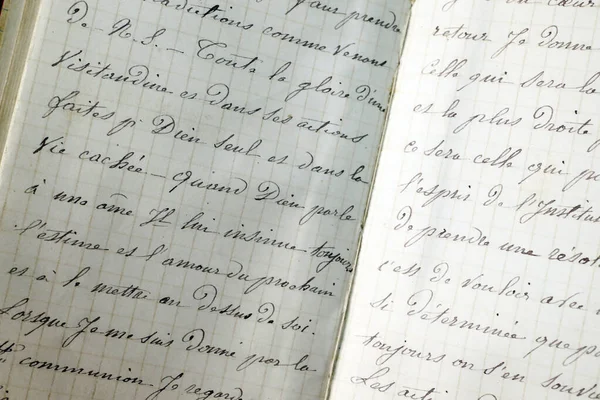 pour prendre
comme venant
De N. S. – Toute la gloire d'une
Visitandine est dans ses actions
faites p. Dieu seul et dans la
vie cachée – quand Dieu parle
à une âme Il lui insinue toujours
l'estime et l'amour du prochain
et à le mettre au dessus de soi.
Lorsque Je me suis donné par la
communion Je regard
cœur
retour Je donne
celle qui sera la
et la plus droite p
ce sera celle qui p
l'esprit de l'Institu
de prendre une résol
c'est de vouloir avec
si déterminée que p
toujours on s'en souvie
Les acti